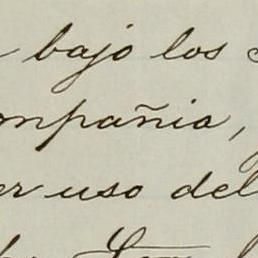 bajo los
ompañia,
er uso del